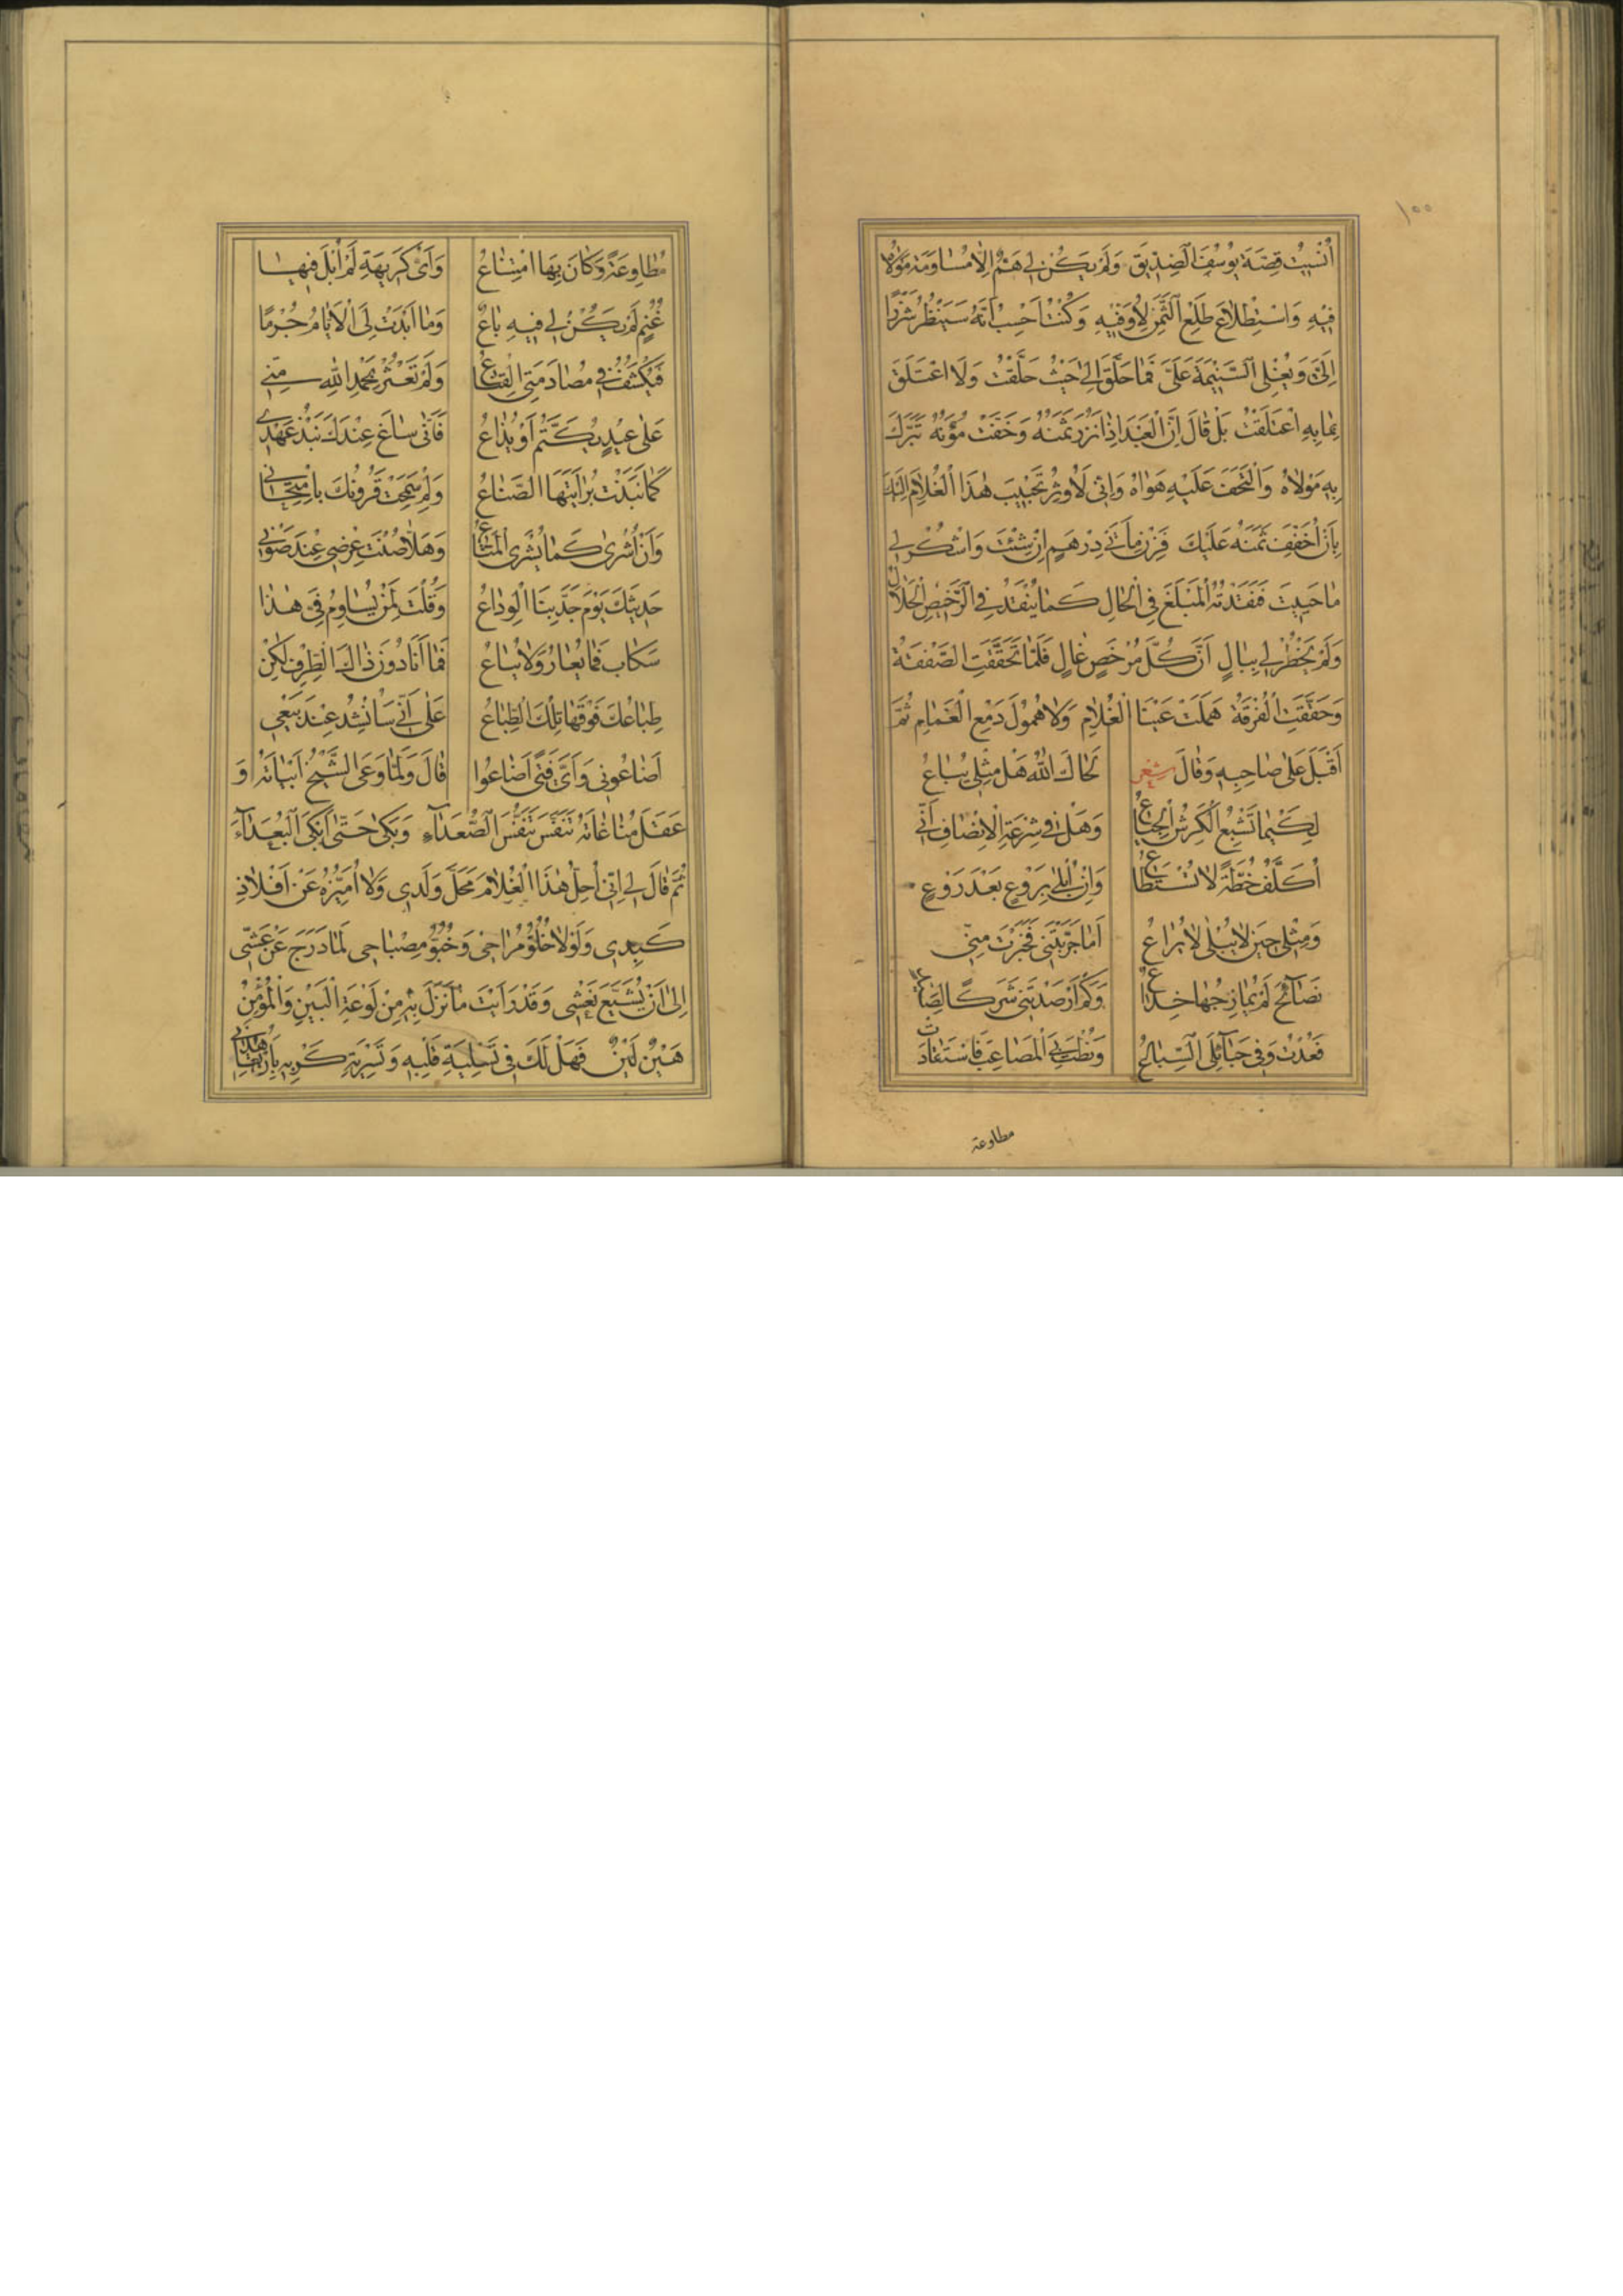 ١٠٠
أُنْسِيتُ قِصَّةَ يُوسُفَ الصِّدِّيقِ وَلَمْ يَكُنْ لِي هَمٌّ إِلَّا مُسَاوَمَةَ مَوْلَاهُ
فِيهِ وَاسْتِطْلَاعَ طِلْعِ الثَّمَنِ لِأُوفِيهِ وَكُنْتُ أَحْسِبُ أَنَّهُ سَيَنْظُرُ شَزْرًا
إِلَيَّ وَيُغْلِي السِّيمَةَ عَلَيَّ فَمَا حَلَّقَ إِلَى حَيْثُ حَلَّقْتُ وَلَا اعْتَلَقَ
بِمَا بِهِ اعْتَلَقْتُ بَلْ قَالَ إِنَّ الْعَبْدَ إِذَا نَزُرَ ثَمَنُهُ وَخَفَّتْ مُؤَنُهُ تَبَرَّكَ
بِهِ مَوْلَاهُ وَالْتَحَفَ عَلَيْهِ هَوَاهُ وَإِنِّي لَأُوثِرُ تَحْبِيبَ هٰذَا الْغُلَامِ إِلَيْكَ
بِأَنْ أُخَفِّفَ ثَمَنَهُ عَلَيْكَ فَزِنْ مِأَتَيْ دِرْهَمٍ إِنْ شِئْتَ وَاشْكُرْ لِي
مَا حَيِيتَ فَنَقَدْتُهُ الْمَبْلَغَ فِي الْحَالِ كَمَا يُنْقَدُ فِي الرَّخِيصِ الْحَلَالِ
وَلَمْ يَخْطُرْ لِي بِبَالٍ أَنَّ كُلَّ مُرْخَصٍ غَالٍ فَلَمَّا تَحَقَّقَتِ الصَّفْقَةُ
وَحَقَّقَتِ الْفُرْقَةُ هَمَلَتْ عَيْنَا الْغُلَامِ وَلَا هُمُولَ دَمْعِ الْغَمَامِ ثُمَّ
أَقْبَلَ عَلَى صَاحِبِهِ وَقَالَ شعر لَحَاكَ اللّٰهُ هَلْ مِثْلِي يُبَاعُ
لِكَيْمَا تَشْبَعَ الْكَرِشُ الْجِيَاعُ وَهَلْ فِي شِرْعَةِ الْإِنْصَافِ أَنِّي
أُكَلَّفُ خُطَّةً لَا تُسْتَطَاعُ وَإِنْ أُبْلَى بِرَوْعٍ بَعْدَ رَوْعٍ
وَمِثْلِي حِينَ لَا يُبْلَى لَا يُرَاعُ أَمَا جَرَّبْتَنِي فَخَبَرْتَ مِنِّي
نَصَائِحَ لَمْ يُمَازِجْهَا خِدَاعُ وَكَمْ أَرْصَدْتَنِي شَرَكًا لِصَيْدٍ
فَعُدْتُ وَفِي حَبَائِلِيَ السِّبَاعُ وَنُطْتَ بِيَ الْمَصَاعِبَ فَاسْتَقَادَتْ
مطاوعة
مُطَاوِعَةً وَكَانَ بِهَا امْتِنَاعُ وَأَيُّ كَرِيهَةٍ لَمْ أُبْلَ فِيهَا
غُنْمٍ لَمْ يَكُنْ لِي فِيهِ بَاعُ وَمَا أَبْدَتْ لِيَ الْأَيَّامُ جُرْمًا
فَيُكْشَفَ فِي مُصَادَمَتِي الْقِنَاعُ وَلَمْ تَعْثُرْ بِحَمْدِ اللّٰهِ مِنِّي
عَلَى عَيْبٍ يُكَتَّمُ أَوْ يُذَاعُ فَأَنَّى سَاغَ عِنْدَكَ نَبْذُ عَهْدِي
كَمَا نَبَذَتْ بُرَايَتَهَا الصَّنَاعُ وَلِمْ سَمَحَتْ قَرُونُكَ بِامْتِهَانِي
وَأَنْ أُشْرَى كَمَا يُشْرَى الْمَتَاعُ وَهَلَّا صُنْتَ عِرْضِي عِنْدَ صَوْنِي
حَدِيثَكَ يَوْمَ جَدَّ بِنَا الْوِدَاعُ وَقُلْتَ لِمَنْ يُسَاوِمُ فِيَّ هٰذَا
سَكَابِ فَمَا يُعَارُ وَلَا يُبَاعُ فَمَا أَنَا دُونَ ذَاكَ الطِّرْفِ لٰكِنْ
طِبَاعُكَ فَوْقَهَا تِلْكَ الطِّبَاعُ عَلَى أَنِّي سَأُنْشِدُ عِنْدَ بَيْعِي
أَضَاعُونِي وَأَيَّ فَتًى أَضَاعُوا قَالَ وَلَمَّا وَعَى الشَّيْخُ أَبْيَاتَهُ وَ
عَقَلَ مُنَاغَاتَهُ تَنَفَّسَ تَنَفُّسَ الصُّعَدَاءِ وَبَكَى حَتَّى أَبْكَى الْبُعَدَاءَ
ثُمَّ قَالَ لِي إِنِّي أُحِلُّ هٰذَا الْغُلَامَ مَحَلَّ وَلَدِي وَلَا أُمَيِّزُهُ عَنْ أَفْلَاذِ
كَبِدِي وَلَوْلَا خُلُوُّ مُرَاحِي وَخُبُوُّ مِصْبَاحِي لَمَا دَرَجَ عَنْ عُشِّي
إِلَى أَنْ يُشَيِّعَ نَعْشِي وَقَدْ رَأَيْتَ مَا نَزَلَ بِهِ مِنْ لَوْعَةِ الْبَيْنِ وَالْمُؤْمِنُ
هَيْنٌ لَيْنٌ فَهَلْ لَكَ فِي تَسْلِيَةِ قَلْبِهِ وَتَسْرِيَةِ كَرْبِهِ بِأَنْ تُعَاهِدَنِي